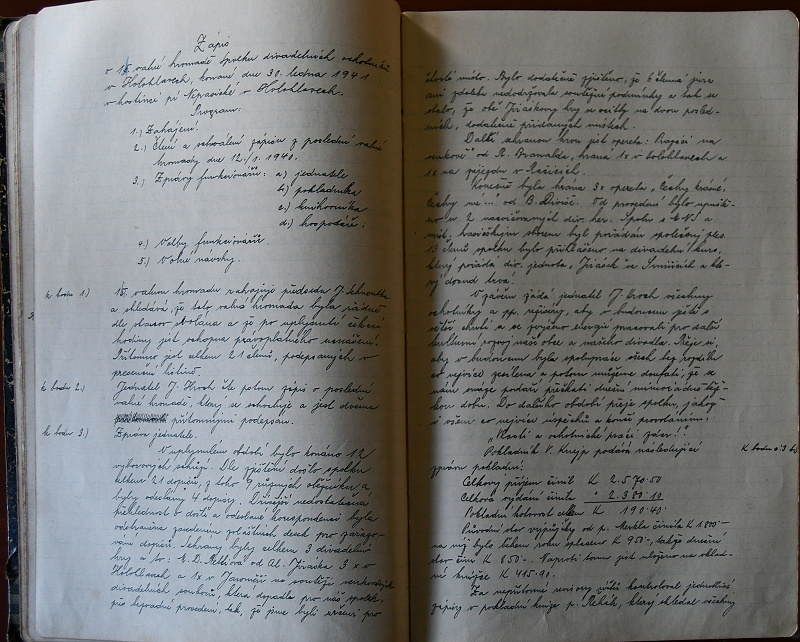 Zápis
o 15. valné hromadě Spolku divadelních ochotníků
v Holohlavech, konané dne 30. ledna 1941
v hostinci pí Nepovické v Holohlavech.
Program:
1.) Zahájení:
2.) Čtení a schválení zápisu z poslední valné
hromady dne 12./1. 1940.
3.) Zprávy funkcionářů: a) jednatele
b) pokladníka
c.) knihovníka
d.) hospodáře.
4.) Volby funkcionářů.
5.) Volné návrhy.
k bodu 1.) 15. valnou hromadu zahajuje předseda J.
a shledává, že tato valná hromada byla řádně
dle stanov svolána a že po uplynutí čekací
hodiny jest schopna právoplatného usnášení.
Přítomno jest celkem 21 členů, podepsaných v
presenční listině.
k bodu 2.) Jednatel J. Kroh čte potom zápis o poslední
valné hromadě, který se schvaluje a jest dvěma
přítomnými podepsán.
k bodu 3.) Zpráva jednatele.
V uplynulém období bylo konáno 12
výborových schůzí. Dle zjištění došlo spolku
celkem 21 dopisů, z toho 9 různých oběžníků a
byly odeslány 4 dopisy. Dřívější nedostatečná
přehlednost v došlé a odeslané korespondenci byla
odstraněna zavedením zvláštních desk pro zařazo-
vání dopisů. Sehrány byly celkem 3 divadelní
hry a to: M. D. Rettigová od Al. Jiráska 3 x v
Holohlavech a 1 x v Jaroměři na soutěži venkovských
divadelních souborů, která dopadla pro náš spolek,
přes provedení, tak, že jsme byli zařazeni pro
místo. Bylo dodatečně zjištěno, že
ani zdaleka nedodržovala soutěžní podmínky a tak se
stalo, že obě Jiráskovy hry se ocitly na dvou posled-
ních, dodatečně přidaných místech.
Další sehranou hrou jest opereta: Rozáci na
venkově" od R. Branalda, hraná 1x v Holohlavech a
1x na zájezdu v
Konečně byla hrána 3x opereta „Čechy krásné,
Čechy mé ..." od B. Od provedení bylo upuště-
no u 2 nacvičovaných div. her. Spolu s
míst. hasičským sborem byl pořádán společný ples.
13 členů spolku bylo přihlášeno na divadelní kurs,
který pořádá div. jednota „Jirásek" ve Smiřicích a kte-
rý dosud trvá.
V závěru žádá jednatel J. Kroh všechny
ochotníky a pp. režisery, aby v budoucnu ještě s
větší chutí a se zvýšenou energií pracovali pro další
kulturní rozvoj naší obce a našeho divadla. Přeje si,
aby v budoucnu byla spolupráce všech
co nejvíce zesílena a potom můžeme doufati, že se
nám snáze podaří přečkati dnešní mimořádně těž-
kou dobu. Do dalšího období přeje spolku, jakož
i všem co nejvíce úspěchů a končí provoláním:
„Vlasti a ochotnické práci zdar!"
k bodu 3 b) Pokladník V. Knejp podává následující
zprávu pokladní:
Celkový příjem činil K 2.570.50
Celková vydání činila " 2.380.10
Pokladní hotovost celkem K 190.40
Původní stav výpůjčky od p. činil K 1800.-
na nějž bylo během roku splaceno K 950.-, takže dnešní
stav činí K 850.-. Naproti tomu jest uloženo na vklad-
ní knížce K 415.90.
Za nepřítomné revisory účtů kontroloval jednotlivé
zápisy v pokladní knize p. Řehák, který shledal všechny